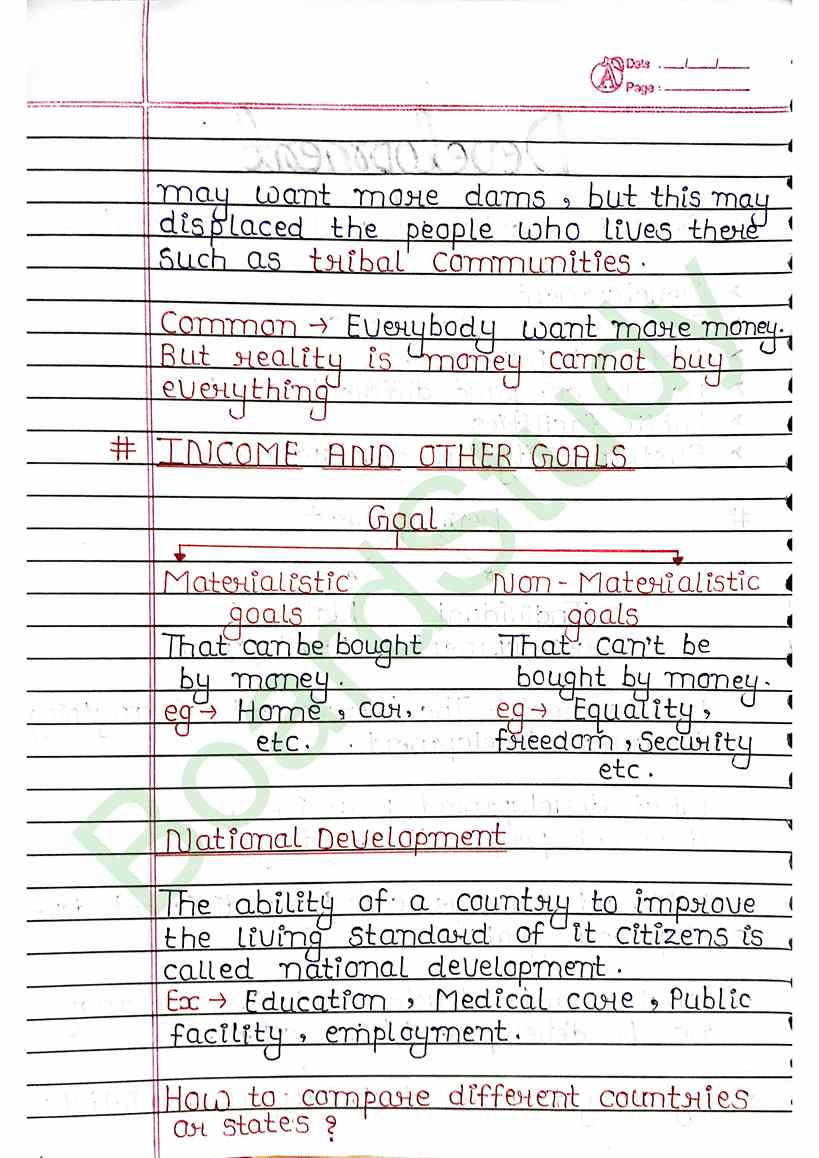 Date : __/__/__
Page : ______
may want more dams, but this may
displaced the people who lives there
such as tribal communities.
Common → Everybody want more money.
But reality is money cannot buy
everything
# INCOME AND OTHER GOALS
Goal
Materialistic goals
That can be bought
by money.
eg → Home, car,
etc.
Non-Materialistic goals
That can't be
bought by money.
eg → Equality,
freedom, Security
etc.
National Development
The ability of a country to improve
the living standard of it citizens is
called national development.
Ex → Education, Medical care, Public
facility, employment.
How to compare different countries
or states?
BoardStudy